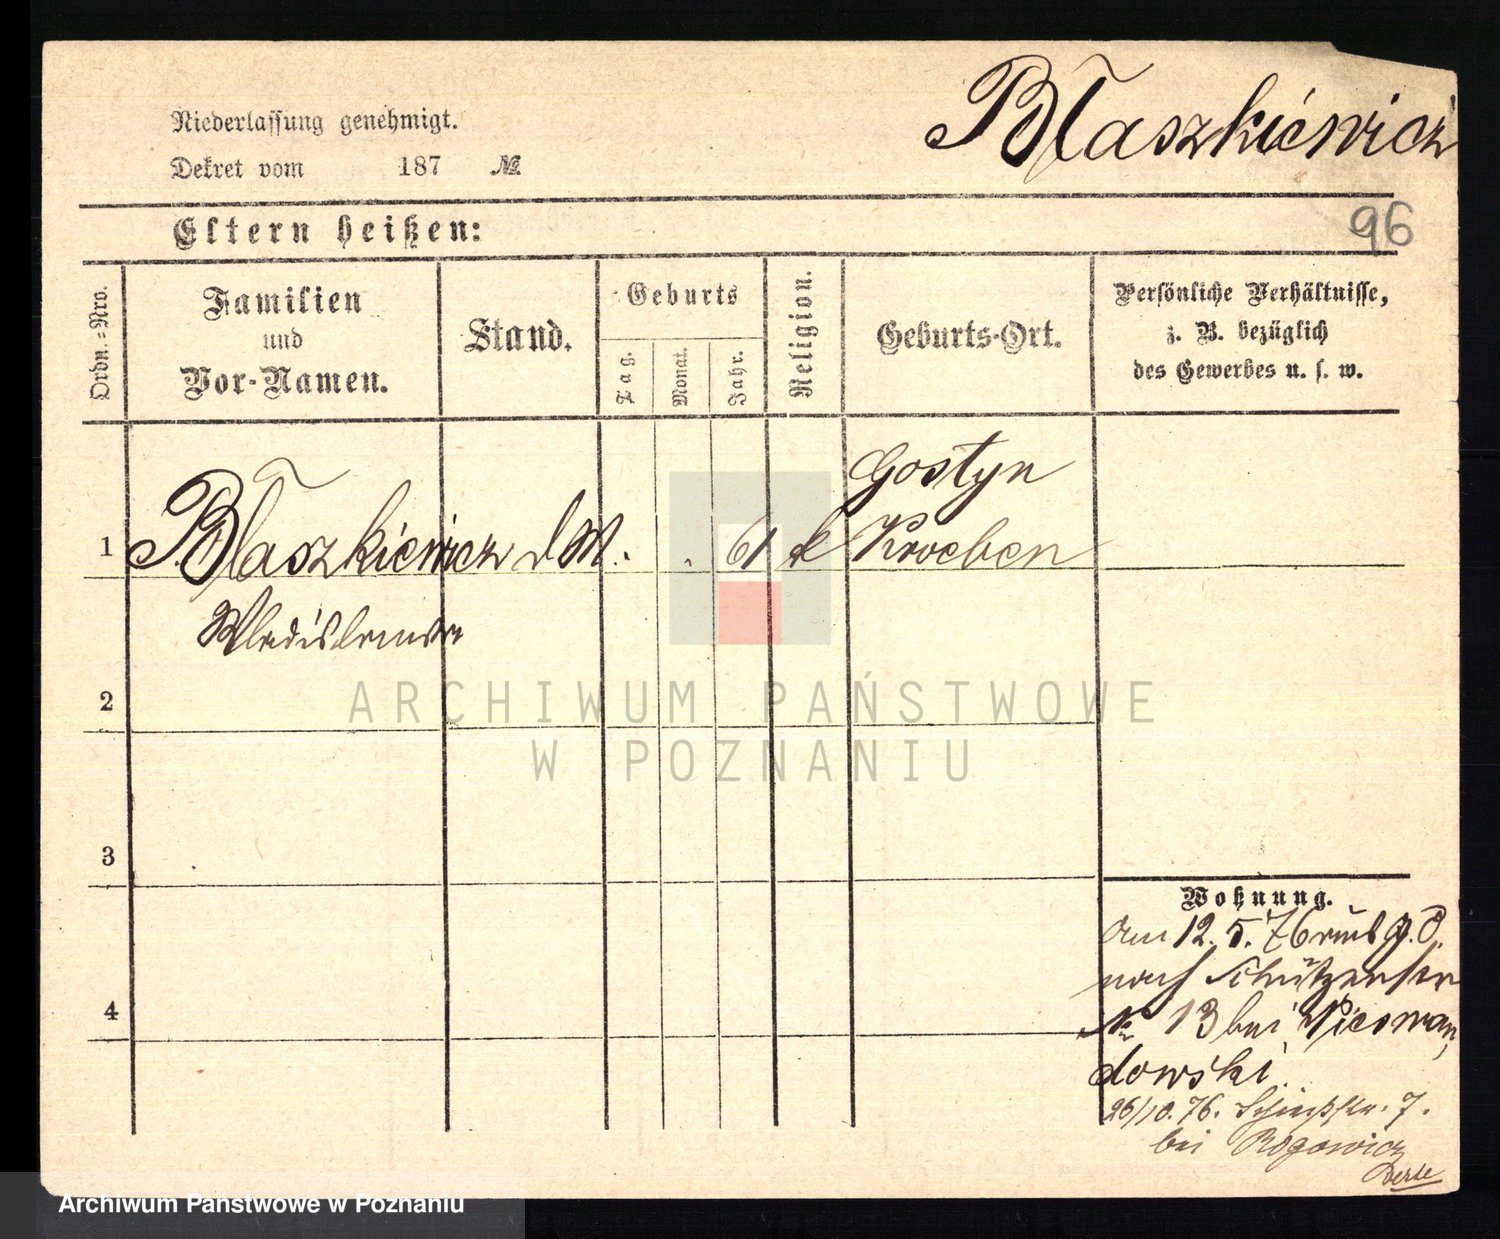 Błaszkiewicz
Niederlassung genehmigt.
Dekret vom 187 №
96
Eltern heißen:
Ordn.=Nro.
Familien
und
Vor-Namen.
Stand.
Geburts
Tag.
Monat.
Jahr.
Religion.
Geburts-Ort.
Persönliche Verhältnisse,
z. B. bezüglich
des Gewerbes u. s. w.
Gostyn
1 Błaszkiewicz d M. 61 k Kroeben
Wladislawa
2
ARCHIWUM PAŃSTWOWE
W POZNANIU
3
Wohnung.
Am 12. 5. 76
nach Schützenstr
4
№ 13 bei
dowski.
26/10. 76. 7.
bei Rogowicz
Archiwum Państwowe w Poznaniu